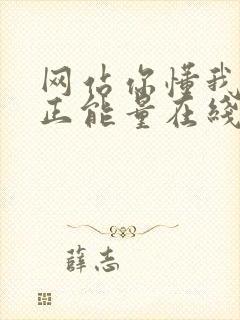 网站你懂我
正能量在线
薛志